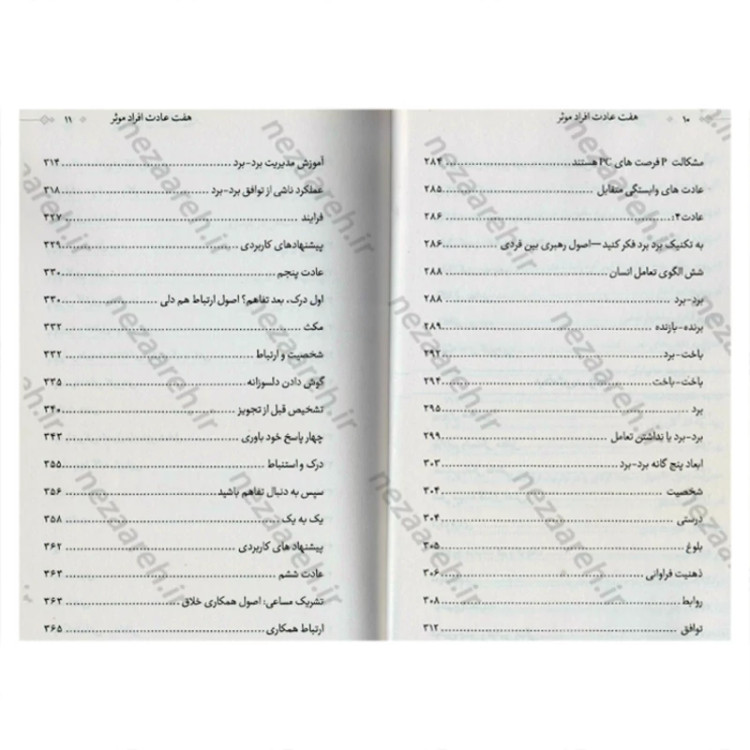 ۱۰ هفت عادت افراد موثر
مشکالت P فرصت های PC هستند ۲۸۴
عادت های وابستگی متقابل ۲۸۵
عادت۴: ۲۸۶
به تکنیک برد برد فکر کنید—اصول رهبری بین فردی ۲۸۶
شش الگوی تعامل انسان ۲۸۸
برد-برد ۲۸۸
برنده-بازنده ۲۸۹
باخت-برد ۲۹۲
باخت-باخت ۲۹۴
برد ۲۹۵
برد-برد یا نداشتن تعامل ۲۹۹
ابعاد پنج گانه برد-برد ۳۰۳
شخصیت ۳۰۴
درستی ۳۰۴
بلوغ ۳۰۵
ذهنیت فراوانی ۳۰۶
روابط ۳۰۸
توافق ۳۱۲
هفت عادت افراد موثر ۱۱
آموزش مدیریت برد-برد ۳۱۴
عملکرد ناشی از توافق برد-برد ۳۱۸
فرایند ۳۲۷
پیشنهادهای کاربردی ۳۲۹
عادت پنجم ۳۳۰
اول درک، بعد تفاهم؟ اصول ارتباط هم دلی ۳۳۰
مکث ۳۳۲
شخصیت و ارتباط ۳۳۲
گوش دادن دلسوزانه ۳۳۵
تشخیص قبل از تجویز ۳۴۰
چهار پاسخ خود باوری ۳۴۳
درک و استنباط ۳۵۵
سپس به دنبال تفاهم باشید ۳۵۶
یک به یک ۳۵۸
پیشنهاد های کاربردی ۳۶۲
عادت ششم ۳۶۳
تشریک مساعی: اصول همکاری خلاق ۳۶۳
ارتباط همکاری ۳۶۵
nezaareh.ir